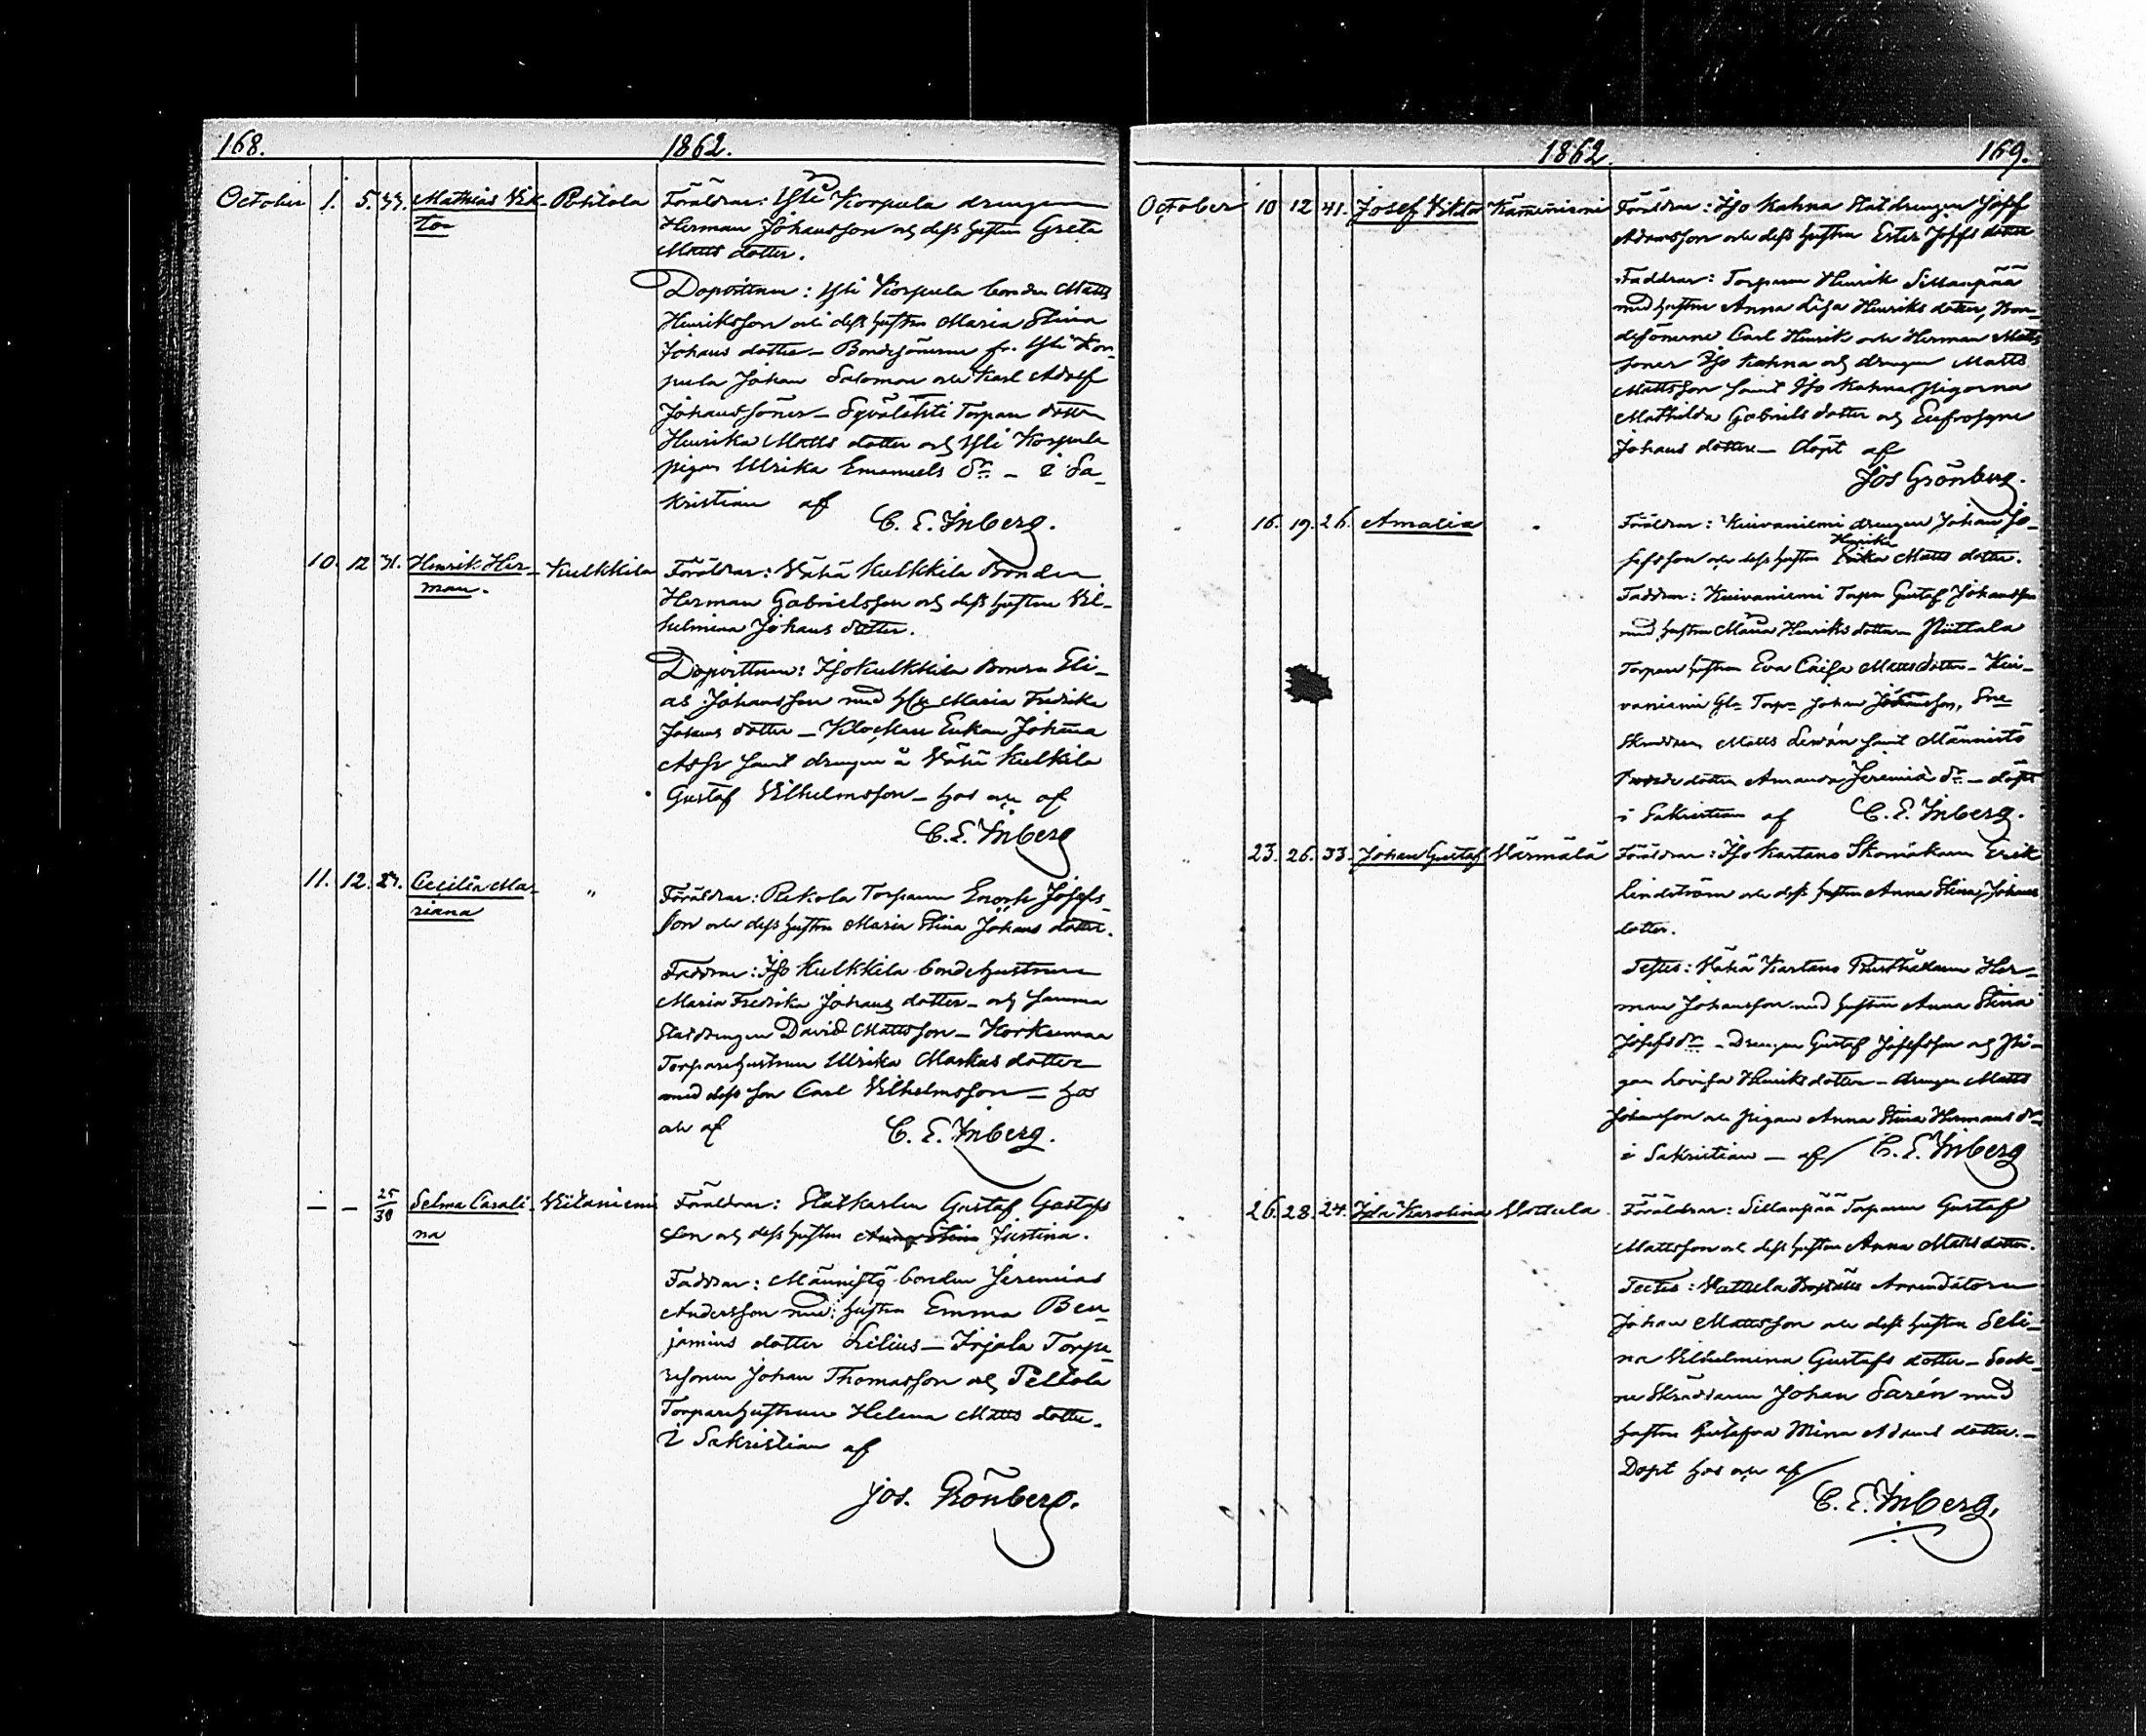 168.
1862.
October 1. 5. 33. Mathias Vik-
tor
Pohtola
Föräldrar: Yli Korpula drengen
Herman Johansson och dess hustru Greta
Matts dotter.
Dopvittnen: Yli Korpula bonden Matts
Henriksson och dess hustru Maria Stina
Johans dotter – Bondesönerne fr. Yli Kor-
pula Johan Salomon och Karl Adolf
Johanssöner – Syvälahti Torpare dotter
Henrika Matts dotter och Yli Korpula
pigan Ulrika Emanuels dr – i Sa-
kristian af
C. E. Inberg.
10. 12 31. Henrik Her-
man.
Kulkkila
Föräldrar: Vähä Kulkkila Bonden
Herman Gabrielsson och dess hustru Vil-
helmina Johans dotter.
Dopvittnen: Iso Kulkkila Bonden Eli-
as Johansson med Maria Fredrika
Johans dotter – Klockare Enkan Johanna
samt drengen å Vähä Kulkila
Gustaf Vilhelmsson – hos af
C. E. Inberg
11. 12. 27. Cecilia Ma-
riana
"
Föräldrar: Rekola Torparen Enoch Josefs-
son och dess hustru Maria Stina Johans dotter.
Faddrar: Iso Kulkkila bondehustrun
Maria Fredrika Johans dotter – och samma
Statdrengen David Mattsson – Korkeemaa
Torparehustrun Ulrika Markus dotter
med dess son Carl Vilhelmsson – hos
af
C. E. Inberg.
– – 25/30 Selma Carali-
na
Viitaniemi
Föräldrar: Statkarlen Gustaf Gustafs
son och dess hustru Anna Stina Justina.
Faddrar: Männistö bonden Jeremias
Andersson med hustru Emma Ben-
jamins dotter Lilius – Irjala Torpa-
resonen Johan Thomasson och Peltola
Torparehustrun Helena Matts dotter.
i Sakristian af
Jos. Grönberg.
1862.
169.
October 10 12 41. Josef Viktor
Kämmäniemi
Föräldrar: Iso Kahna Statdrengen Josef
Adamsson och dess hustru Ester Josefs dotter
Faddrar: Torparen Henrik Sillanpää
med hustru Anna Lisa Henriks dotter, Bon-
desönerne Carl Henrik och Herman Matts
söner Iso Kahna och drengen Matts
Mattsson samt Iso Kahna pigorna
Mathilda Gabriels dotter och Eufrosyne
Johans dotter – döpt af
Jos Grönberg.
16. 19. 26. Amalia
Föräldrar: Kuivaniemi drengen Johan Jo-
sefsson och dess hustru Erika Matts dotter.
Henrika
Faddrar: Kuivaniemi Gustaf Johansson
med hustru Maria Henriks dotter – Piittala
Torpare hustrun Eva Caisa Matts dotter – Kui-
vaniemi Johan Johansson,
Skräddaren Matts samt Männistö
Bonde dotter Amanda Jeremias dr – döpt
i Sakristian af C. E. Inberg.
23. 26. 33. Johan Gustaf
Värmälä
Föräldrar: Iso Kartano Skomakaren Erik
Lindström och dess hustru Anna Stina Johans
dotter.
Testes: Vähä Kartano Rusthållaren Her-
man Johansson med hustru Anna Stina
Josefs dr – Drengen Gustaf Josefsson och Pi-
gan Lovisa Henriks dotter – drengen Matts
Johansson och pigan Anna Stina Hermans dr
i Sakristian – af C. E. Inberg
26. 28. 24. Ida Karolina
Vattula
Föräldrar: Sillanpää Torparen Gustaf
Mattsson och dess hustru Anna Matts dotter.
Testes: Vattula Boställes Arrendatoren
Johan Mattsson och dess hustru Seli-
na Vilhelmina Gustafs dotter – Sock-
ne Skräddaren Johan Sarén med
hustru Gustafva Mina Adams dotter. –
Döpt hos af
C. E. Inberg.